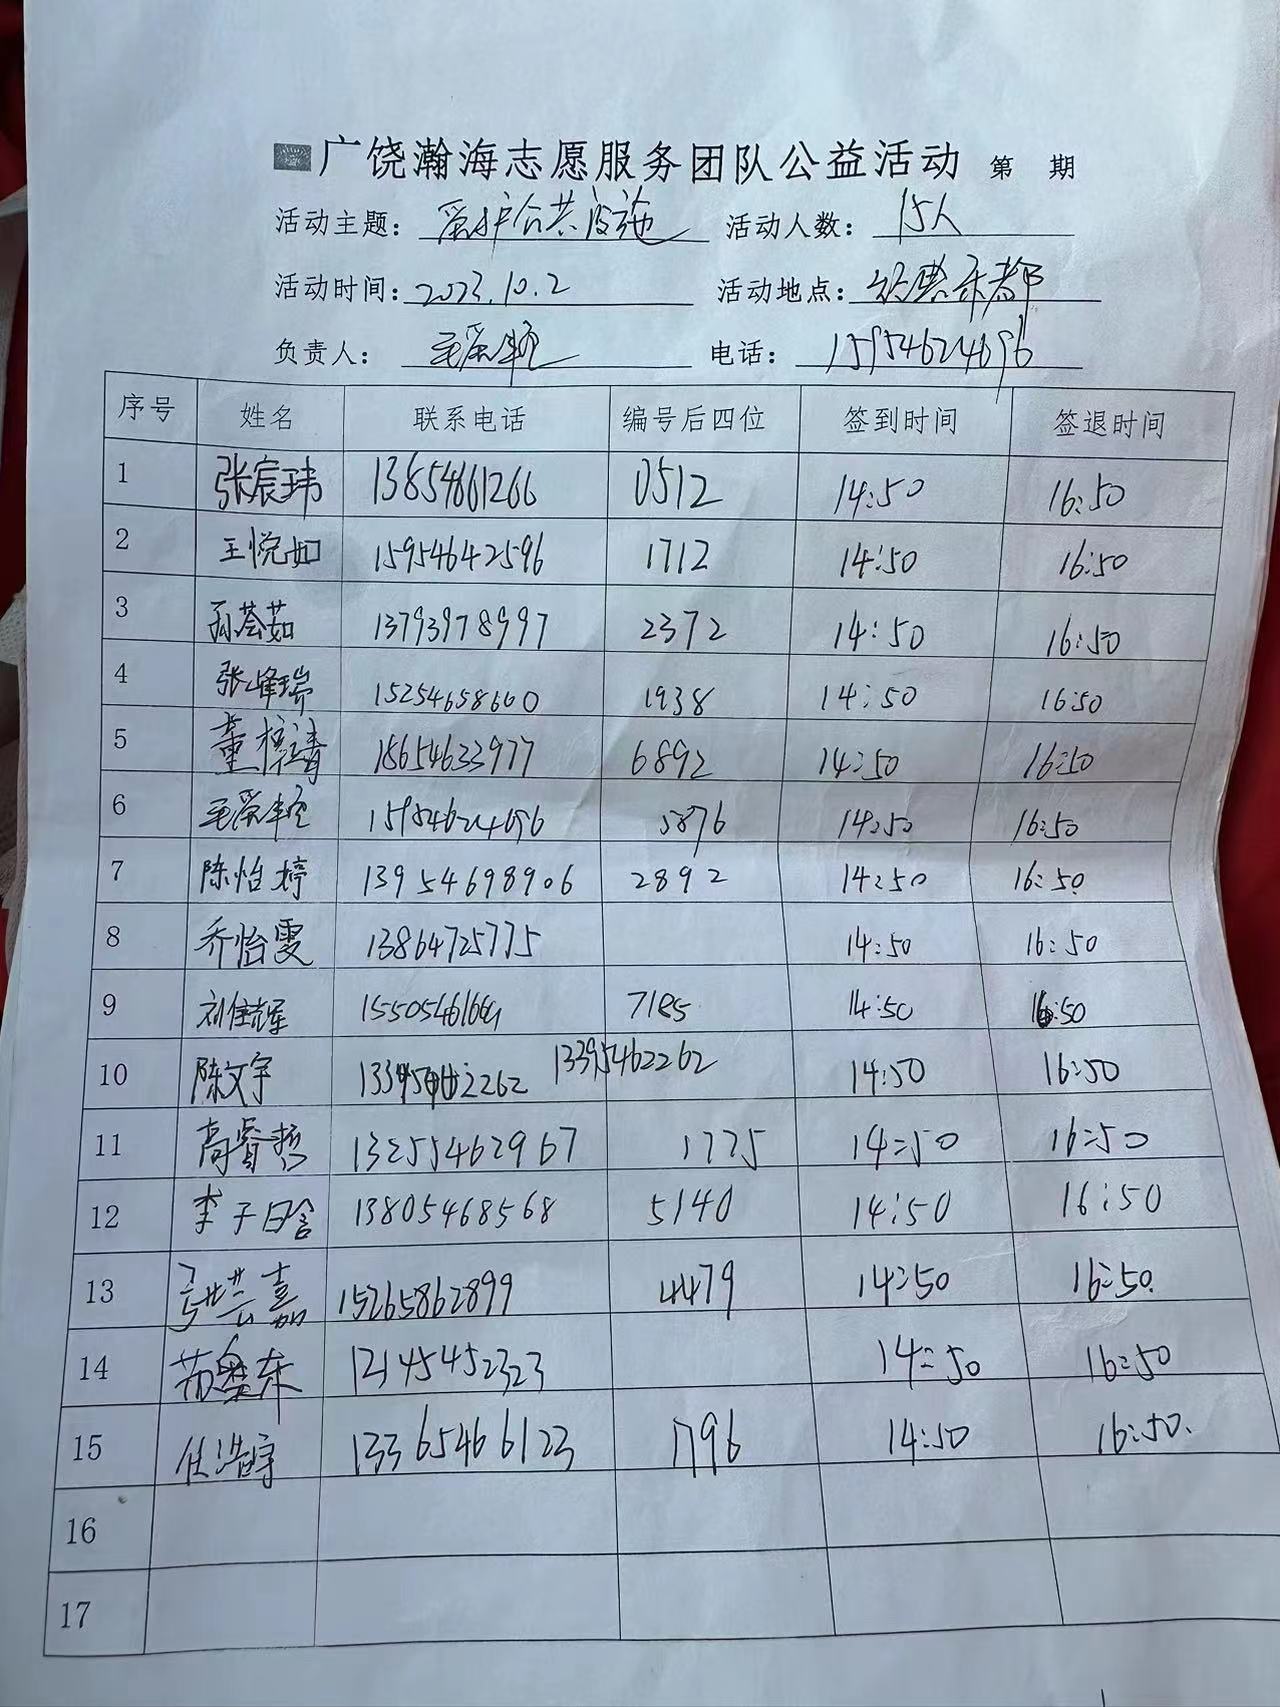 广饶瀚海志愿服务团队公益活动 第 期
活动主题: 爱护公共设施 活动人数: 15人
活动时间: 2023.10.2 活动地点: 经典乐都
负责人: 电话: 15954624696
序号 姓名 联系电话 编号后四位 签到时间 签退时间
1 张宸玮 13854661266 0512 14:50 16:50
2 王悦如 15954642596 1712 14:50 16:50
3 孙荟茹 13793978997 2372 14:50 16:50
4 张峰瑞 15254658660 1938 14:50 16:50
5 董 18654633977 6892 14:50 16:50
6 15954624696 5876 14:50 16:50
7 陈怡婷 13954698906 2892 14:50 16:50
8 乔怡雯 13864725775 14:50 16:50
9 刘佳辉 7185 14:50 16:50
10 陈文宇 13395462262 14:50 16:50
11 高睿哲 13255462967 1775 14:50 16:50
12 李子晗 13805468568 5140 14:50 16:50
13 张芸嘉 15265862899 4479 14:50 16:50
14 12145452323 14:50 16:50
15 任浩宇 13365466123 1796 14:50 16:50.
16
17